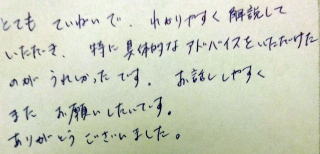 とても ていねいで、わかりやすく 解説して
いただき、特に具体的なアドバイスをいただけた
のが うれしかったです。お話ししやすく
また お願いしたいです。
ありがとう ございました。